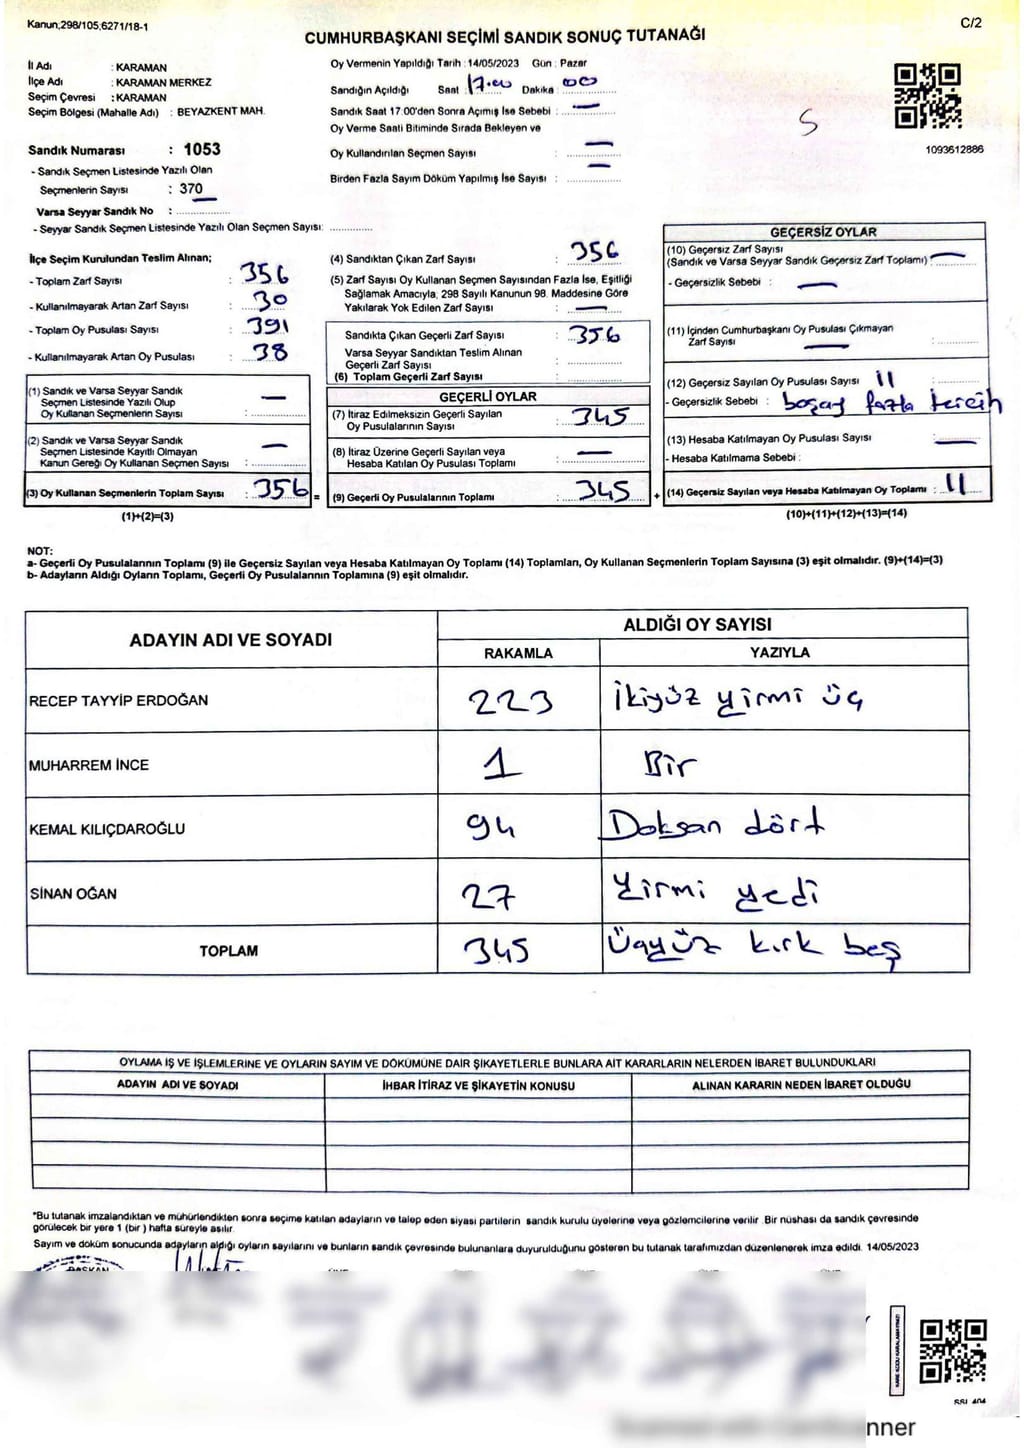 Kanun;298/105,6271/18-1
C/2
CUMHURBAŞKANI SEÇİMİ SANDIK SONUÇ TUTANAĞI
İl Adı : KARAMAN
İlçe Adı : KARAMAN MERKEZ
Seçim Çevresi : KARAMAN
Seçim Bölgesi (Mahalle Adı) : BEYAZKENT MAH.
Sandık Numarası : 1053
- Sandık Seçmen Listesinde Yazılı Olan
Seçmenlerin Sayısı : 370
Varsa Seyyar Sandık No : ................
- Seyyar Sandık Seçmen Listesinde Yazılı Olan Seçmen Sayısı: .............
Oy Vermenin Yapıldığı Tarih : 14/05/2023 Gün : Pazar
Sandığın Açıldığı Saat : 17.00 Dakika : 00
Sandık Saat 17:00'den Sonra Açımış İse Sebebi : —
Oy Verme Saati Bitiminde Sırada Bekleyen ve
Oy Kullandırılan Seçmen Sayısı : —
Birden Fazla Sayım Döküm Yapılmış İse Sayısı : —
S
1093612886
İlçe Seçim Kurulundan Teslim Alınan;
- Toplam Zarf Sayısı : 356
- Kullanılmayarak Artan Zarf Sayısı : 30
- Toplam Oy Pusulası Sayısı : 391
- Kullanılmayarak Artan Oy Pusulası : 38
(1) Sandık ve Varsa Seyyar Sandık
Seçmen Listesinde Yazılı Olup
Oy Kullanan Seçmenlerin Sayısı : —
(2) Sandık ve Varsa Seyyar Sandık
Seçmen Listesinde Kayıtlı Olmayan
Kanun Gereği Oy Kullanan Seçmen Sayısı : —
(3) Oy Kullanan Seçmenlerin Toplam Sayısı : 356 =
(1)+(2)=(3)
(4) Sandıktan Çıkan Zarf Sayısı : 356
(5) Zarf Sayısı Oy Kullanan Seçmen Sayısından Fazla İse, Eşitliği
Sağlamak Amacıyla, 298 Sayılı Kanunun 98. Maddesine Göre
Yakılarak Yok Edilen Zarf Sayısı : —
Sandıkta Çıkan Geçerli Zarf Sayısı : 356
Varsa Seyyar Sandıktan Teslim Alınan
Geçerli Zarf Sayısı :
(6) Toplam Geçerli Zarf Sayısı :
GEÇERLİ OYLAR
(7) İtiraz Edilmeksizin Geçerli Sayılan
Oy Pusulalarının Sayısı : 345
(8) İtiraz Üzerine Geçerli Sayılan veya
Hesaba Katılan Oy Pusulası Toplamı : —
(9) Geçerli Oy Pusulalarının Toplamı : 345 +
GEÇERSİZ OYLAR
(10) Geçersiz Zarf Sayısı
(Sandık ve Varsa Seyyar Sandık Geçersiz Zarf Toplamı) : —
- Geçersizlik Sebebi : —
(11) İçinden Cumhurbaşkanı Oy Pusulası Çıkmayan
Zarf Sayısı — :
(12) Geçersiz Sayılan Oy Pusulası Sayısı 11
- Geçersizlik Sebebi : fazla tercih
(13) Hesaba Katılmayan Oy Pusulası Sayısı : —
- Hesaba Katılmama Sebebi :
(14) Geçersiz Sayılan veya Hesaba Katılmayan Oy Toplamı : 11
(10)+(11)+(12)+(13)=(14)
NOT:
a- Geçerli Oy Pusulalarının Toplamı (9) ile Geçersiz Sayılan veya Hesaba Katılmayan Oy Toplamı (14) Toplamları, Oy Kullanan Seçmenlerin Toplam Sayısına (3) eşit olmalıdır. (9)+(14)=(3)
b- Adayların Aldığı Oyların Toplamı, Geçerli Oy Pusulalarının Toplamına (9) eşit olmalıdır.
ADAYIN ADI VE SOYADI
ALDIĞI OY SAYISI
RAKAMLA YAZIYLA
RECEP TAYYİP ERDOĞAN 223 İkiyüz yirmi üç
MUHARREM İNCE 1 Bir
KEMAL KILIÇDAROĞLU 94 Doksan dört
SİNAN OĞAN 27 Yirmi yedi
TOPLAM 345 Üçyüz kırk beş
OYLAMA İŞ VE İŞLEMLERİNE VE OYLARIN SAYIM VE DÖKÜMÜNE DAİR ŞİKAYETLERLE BUNLARA AİT KARARLARIN NELERDEN İBARET BULUNDUKLARI
ADAYIN ADI VE SOYADI İHBAR İTİRAZ VE ŞİKAYETİN KONUSU ALINAN KARARIN NEDEN İBARET OLDUĞU
*Bu tutanak imzalandıktan ve mühürlendikten sonra seçime katılan adayların ve talep eden siyasi partilerin sandık kurulu üyelerine veya gözlemcilerine verilir. Bir nüshası da sandık çevresinde
görülecek bir yere 1 (bir ) hafta süreyle asılır.
Sayım ve döküm sonucunda adayların aldığı oyların sayılarını ve bunların sandık çevresinde bulunanlara duyurulduğunu gösteren bu tutanak tarafımızdan düzenlenerek imza edildi. 14/05/2023
BAŞKAN